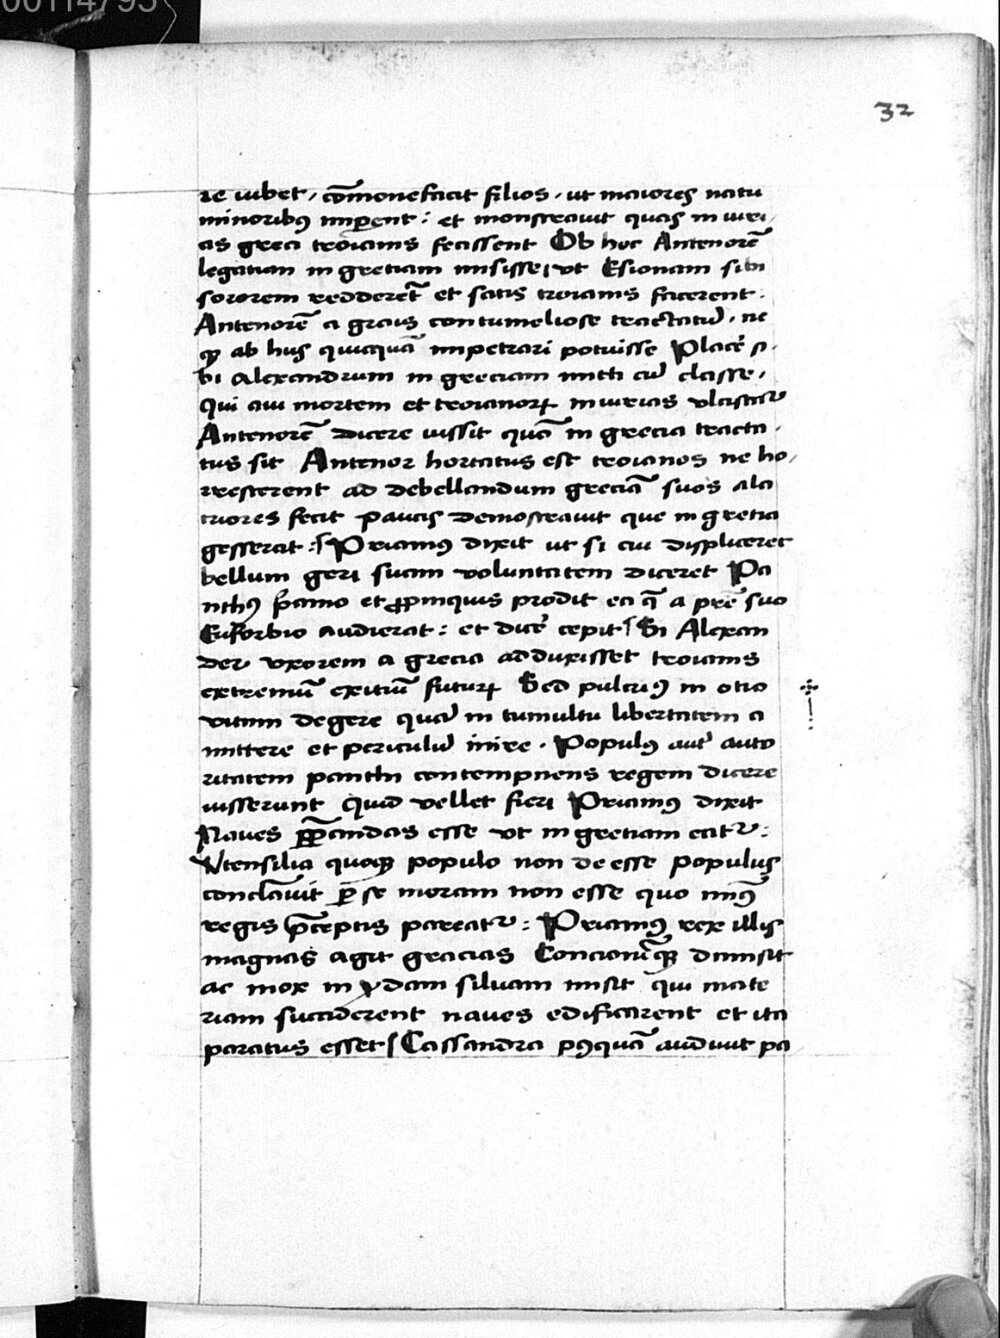 00114795
32
re iubet, com̄onefacit filios, ut maiores natu
minoribꝰ imꝑent: et monstrauit quas in iuri,
as greci troianis fecissent Ob hoc Antenorē
legatum in gretiam misisse, ut Esionam sibi
sororem redderēt et satis troianis facerent:
Antenorē a grais contumeliose tractatū, ne
qꝫ ab hijs quicquā impetrari potuisse Placē̄ si,
bi Alexandrum in greciam mitti cū classe,
Qui aui mortem et troianoꝝ iniurias ulciscatᷣ
Antenorē dicere iussit quō in grecia tracta,
tus sit Antenor hortatus est troianos ne ho,
rrescerent ad debellandum greciā suos ala
criores fecit paucis demostrauit que in gretia
gesserat: Priamꝰ dixit ut si cui displiceret
bellum geri suam voluntatem diceret Pa
nthꝰ p̄amo et ꝓpinquis prodit ea q̄ a pr̄e suo
Euforbio audierat: et dicē̄ cepit Si Alexan
der uxorem a grecia adduxisset troianis
extremū exitiū futuꝝ Sed pulcriꝰ in otio
vitam degere quā in tumultu libertatem a
mittere et periculū inire. Populꝰ aut̄ auto
ritatem panthi contempnens regem dicere
iusserunt Quid vellet fieri Priamꝰ dixit
Naues p̄ꝑandas esse ut in gretiam eatᷣ:
Vtensilia quoqꝫ populo non de esse populus
conclāuit ꝑ se moram non esse quo minꝰ
regis p̄ceptis pareatᷣ: Priamꝰ rex illis
magnas agit gracias Concionēqꝫ dimisit
ac mox in ydam siluam misit qui mate
riam succiderent naues edificarent et ita
paratus esset Cassandra pꝰquā audiuit pa